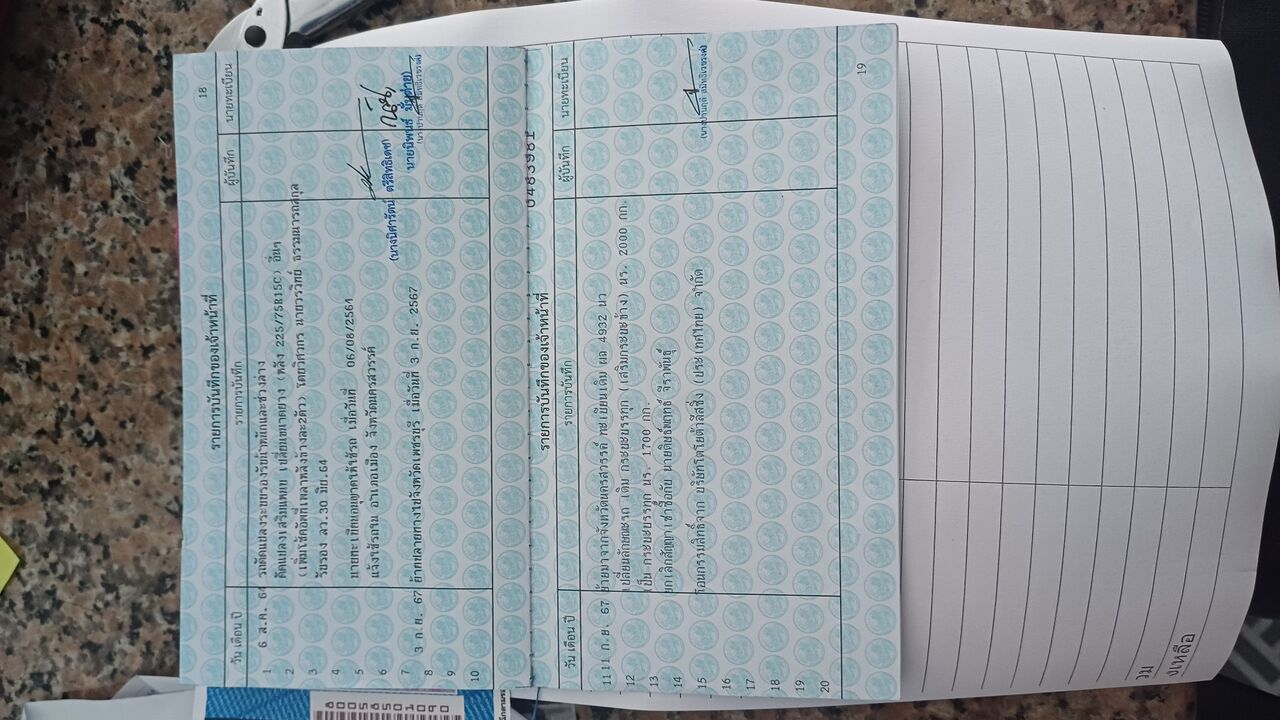 18
รายการบันทึกของเจ้าหน้าที่
วัน เดือน ปี รายการบันทึก ผู้บันทึก นายทะเบียน
1 6 ส.ค. 64 รถดัดแปลงระบบรองรับน้ำหนักและช่วงล่าง
2 ดัดแปลงเสริมแหนบ เปลี่ยนขนาดยาง (หลัง 225/75R15C) อื่นๆ
3 (เพิ่มโช๊คอัพที่เพลาหลังข้างละ2ตัว) โดยวิศวกร
รับรอง ลว.30 มิย.64
4 นายทะเบียนอนุญาตให้ใช้รถ เมื่อวันที่ 06/08/2564
5
6 แจ้งใช้รถใน อำเภอเมือง จังหวัดนครสวรรค์
(นางนิศารัตน์ ตรีสิทธิเดช)
7 3 ก.ย. 67 ย้ายปลายทางไปจังหวัดเพชรบุรี เมื่อวันที่ 3 ก.ย. 2567
8
9
10
0483981
รายการบันทึกของเจ้าหน้าที่
วัน เดือน ปี รายการบันทึก ผู้บันทึก นายทะเบียน
11 11 ก.ย. 67 ย้ายมาจากจังหวัดนครสวรรค์ ทะเบียนเดิม ผถ 4932 นว
12 เปลี่ยนลักษณะรถ เดิม กระบะบรรทุก (เสริมกระบะข้าง) นร. 2000 กก.
13 เป็น กระบะบรรทุก นร. 1700 กก.
14 ยกเลิกสัญญาเช่าซื้อกับ
15 โอนกรรมสิทธิ์จาก บริษัทโตโยต้าลีสซิ่ง (ประเทศไทย) จำกัด
16
17
18
19
20
19
รวม
คงเหลือ